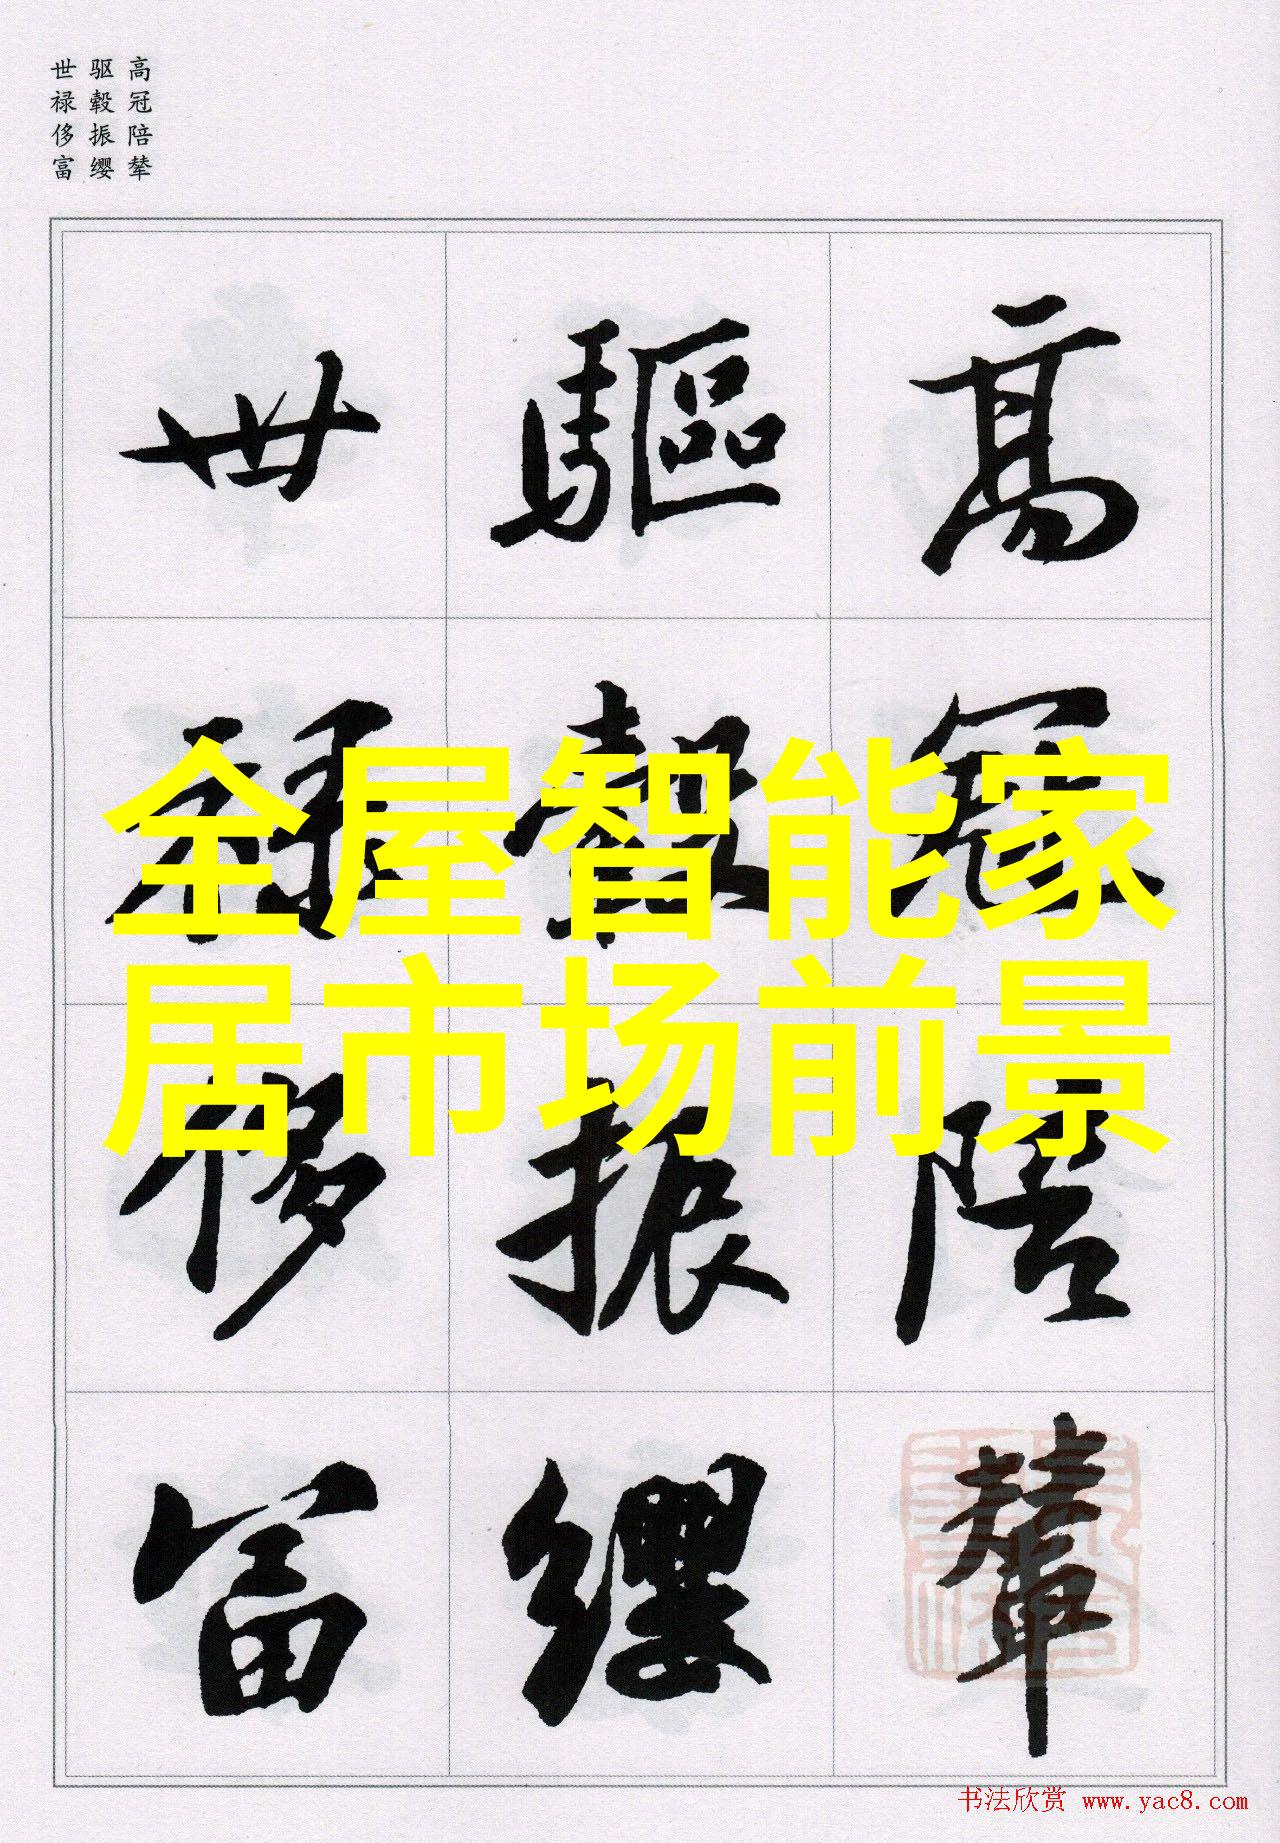 高冠陪辇
驱毂振缨
世禄侈富
高冠陪輦
驅轂振纓
世禄侈富
全屋智能家
居市场前景
书法欣赏 www.yac8.com